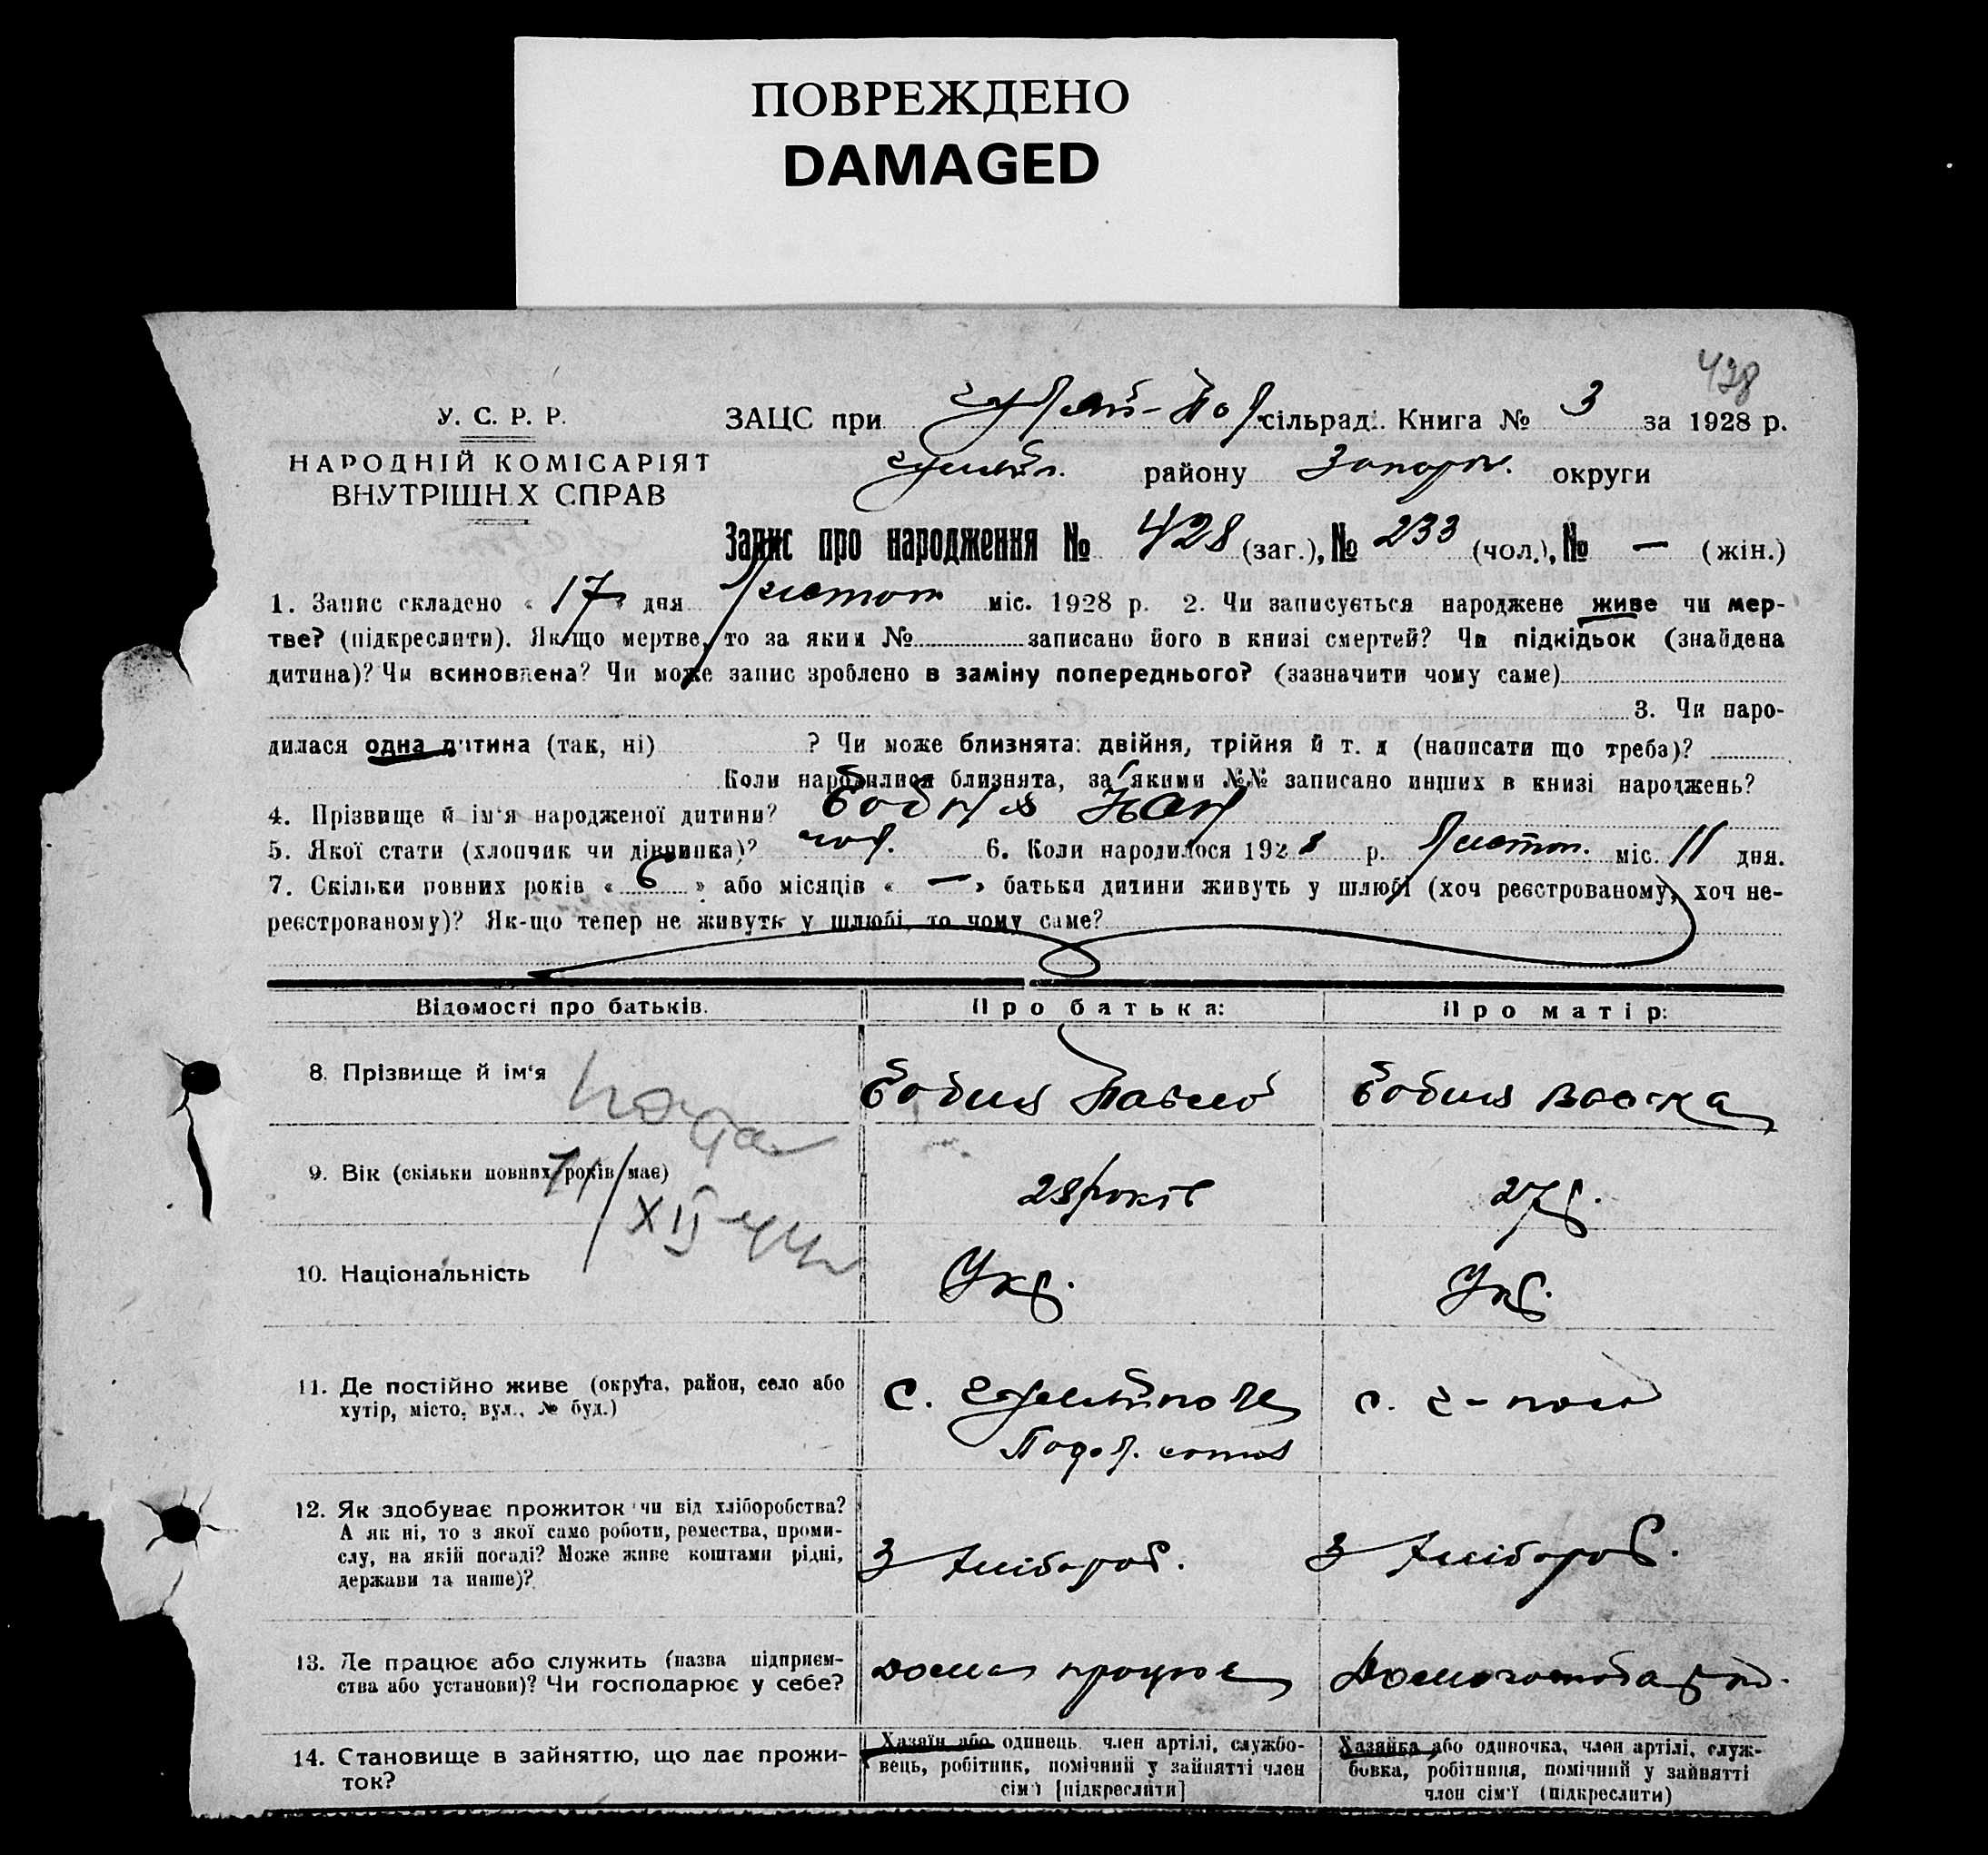 ПОВРЕЖДЕНО
DAMAGED
428
У. С. Р. Р.
НАРОДНІЙ КОМІСАРІЯТ
ВНУТРІШНІХ СПРАВ
ЗАЦС при Гуляй-Пол сільраді. Книга № 3 за 1928 р.
району Запоріж. округи
Запис про народження № 428 (заг.), № 233 (чол.), № — (жін.)
1. Запис складено « 17 » дня листоп міс. 1928 р. 2. Чи записується народжене живе чи мер-
тве? (підкреслити). Як-що мертве, то за яким № записано його в книзі смертей? Чи підкідьок (знайдена
дитина)? Чи всиновлена? Чи може запис зроблено в заміну попереднього? (зазначити чому саме)
3. Чи наро-
дилася одна дитина (так, ні) ? Чи може близнята: двійня, трійня й т. д (написати що треба)?
Коли народилися близнята, за якими №№ записано инших в книзі народжень?
4. Прізвище й ім'я народженої дитини? Бобиля
5. Якої стати (хлопчик чи дівчинка)? чол. 6. Коли народилося 1928 р. Листоп. міс. 11 дня.
7. Скільки повних років « 6 » або місяців « — » батьки дитини живуть у шлюбі (хоч реєстрованому, хоч не-
реєстрованому)? Як-що тепер не живуть у шлюбі, то чому саме?
Відомості про батьків. Про батька: Про матір:
8. Прізвище й ім'я Бобиля Павло Бобиля
9. Вік (скільки повних років має) 28 років 27 р.
XII 44
10. Національність Укр. Укр.
11. Де постійно живе (округа, район, село або
хутір, місто, вул., № буд.) с. Гуляйполе с. Г-поле
Подол. сотня
12. Як здобуває прожиток чи від хліборобства?
А як ні, то з якої само роботи, ремества, проми-
слу, на якій посаді? Може живе коштами рідні,
держави та инше)? З хлібороб. З хлібороб.
13. Де працює або служить (назва підприєм-
ства або установи)? Чи господарює у себе? дома працює Домогосподар
14. Становище в зайняттю, що дає прожи-
ток?
Хазяїн або одинець, член артілі, службо-
вець, робітник, помічний у зайнятті член
сім'ї [підкреслити]
Хазяйка або одиночка, член артілі, служ-
бовка, робітниця, помічний у зайнятті
член сім'ї (підкреслити)